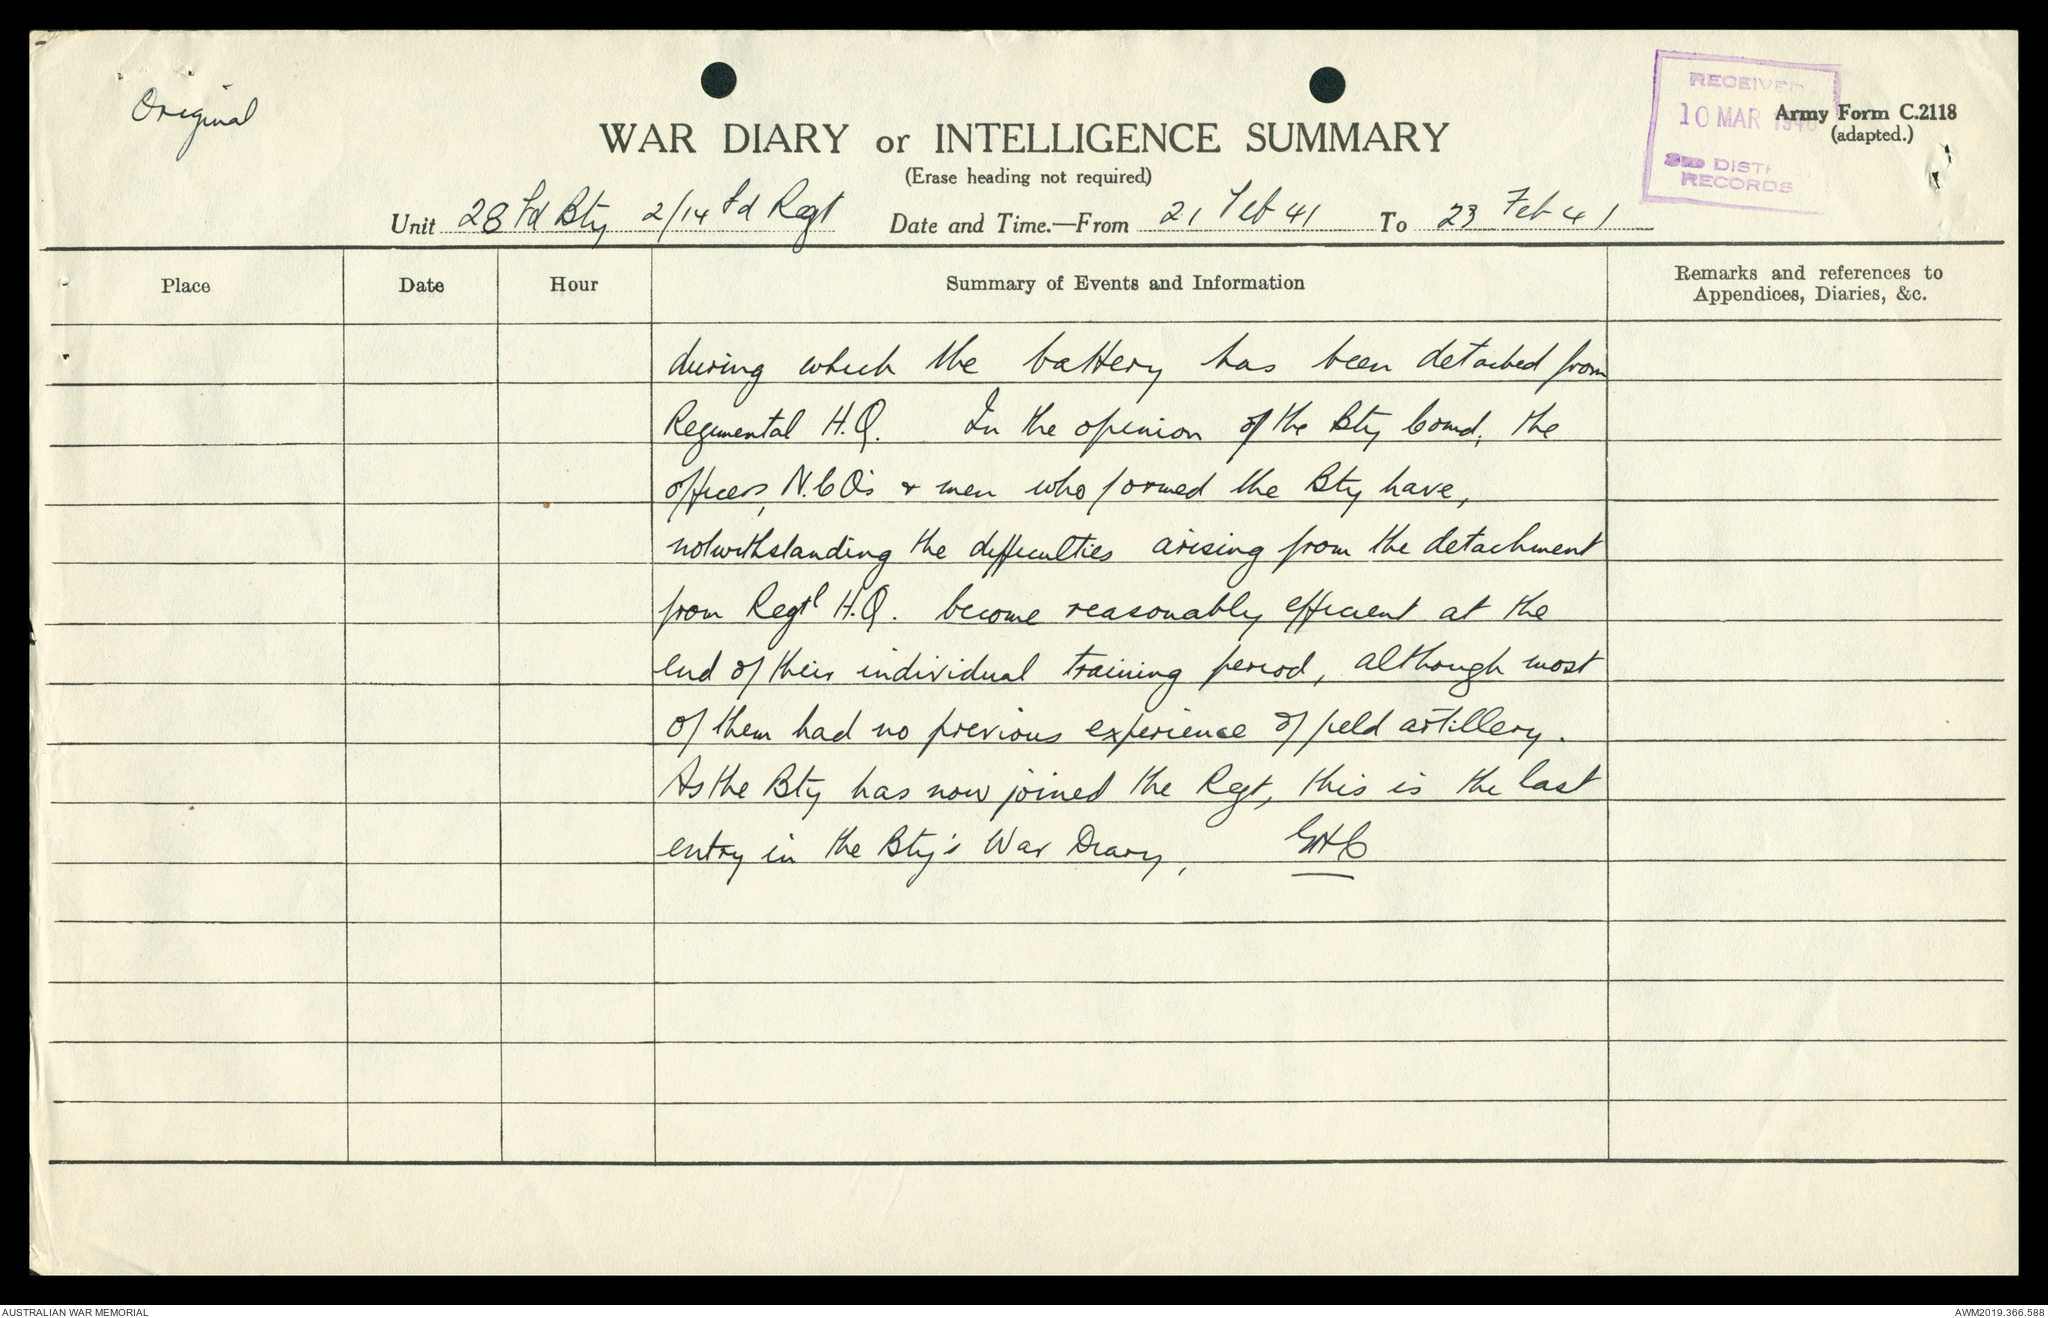 Original
RECEIVED
10 MAR 1946
3RD DIST
RECORDS
Army Form C.2118
(adapted.)
WAR DIARY or INTELLIGENCE SUMMARY
(Erase heading not required)
Unit 28 Fd Bty 2/14 Fd Regt Date and Time.—From 21 Feb 41 To 23 Feb 41
Place Date Hour Summary of Events and Information Remarks and references to Appendices, Diaries, &c.
during which the battery has been detached from
Regimental H.Q. In the opinion of the Bty Comd, the
officers, N.C.O's & men who formed the Bty have,
notwithstanding the difficulties arising from the detachment
from Regtl H.Q. become reasonably efficient at the
end of their individual training period, although most
of them had no previous experience of field artillery.
As the Bty has now joined the Regt, this is the last
entry in the Bty's War Diary,
AUSTRALIAN WAR MEMORIAL
AWM2019.366.588